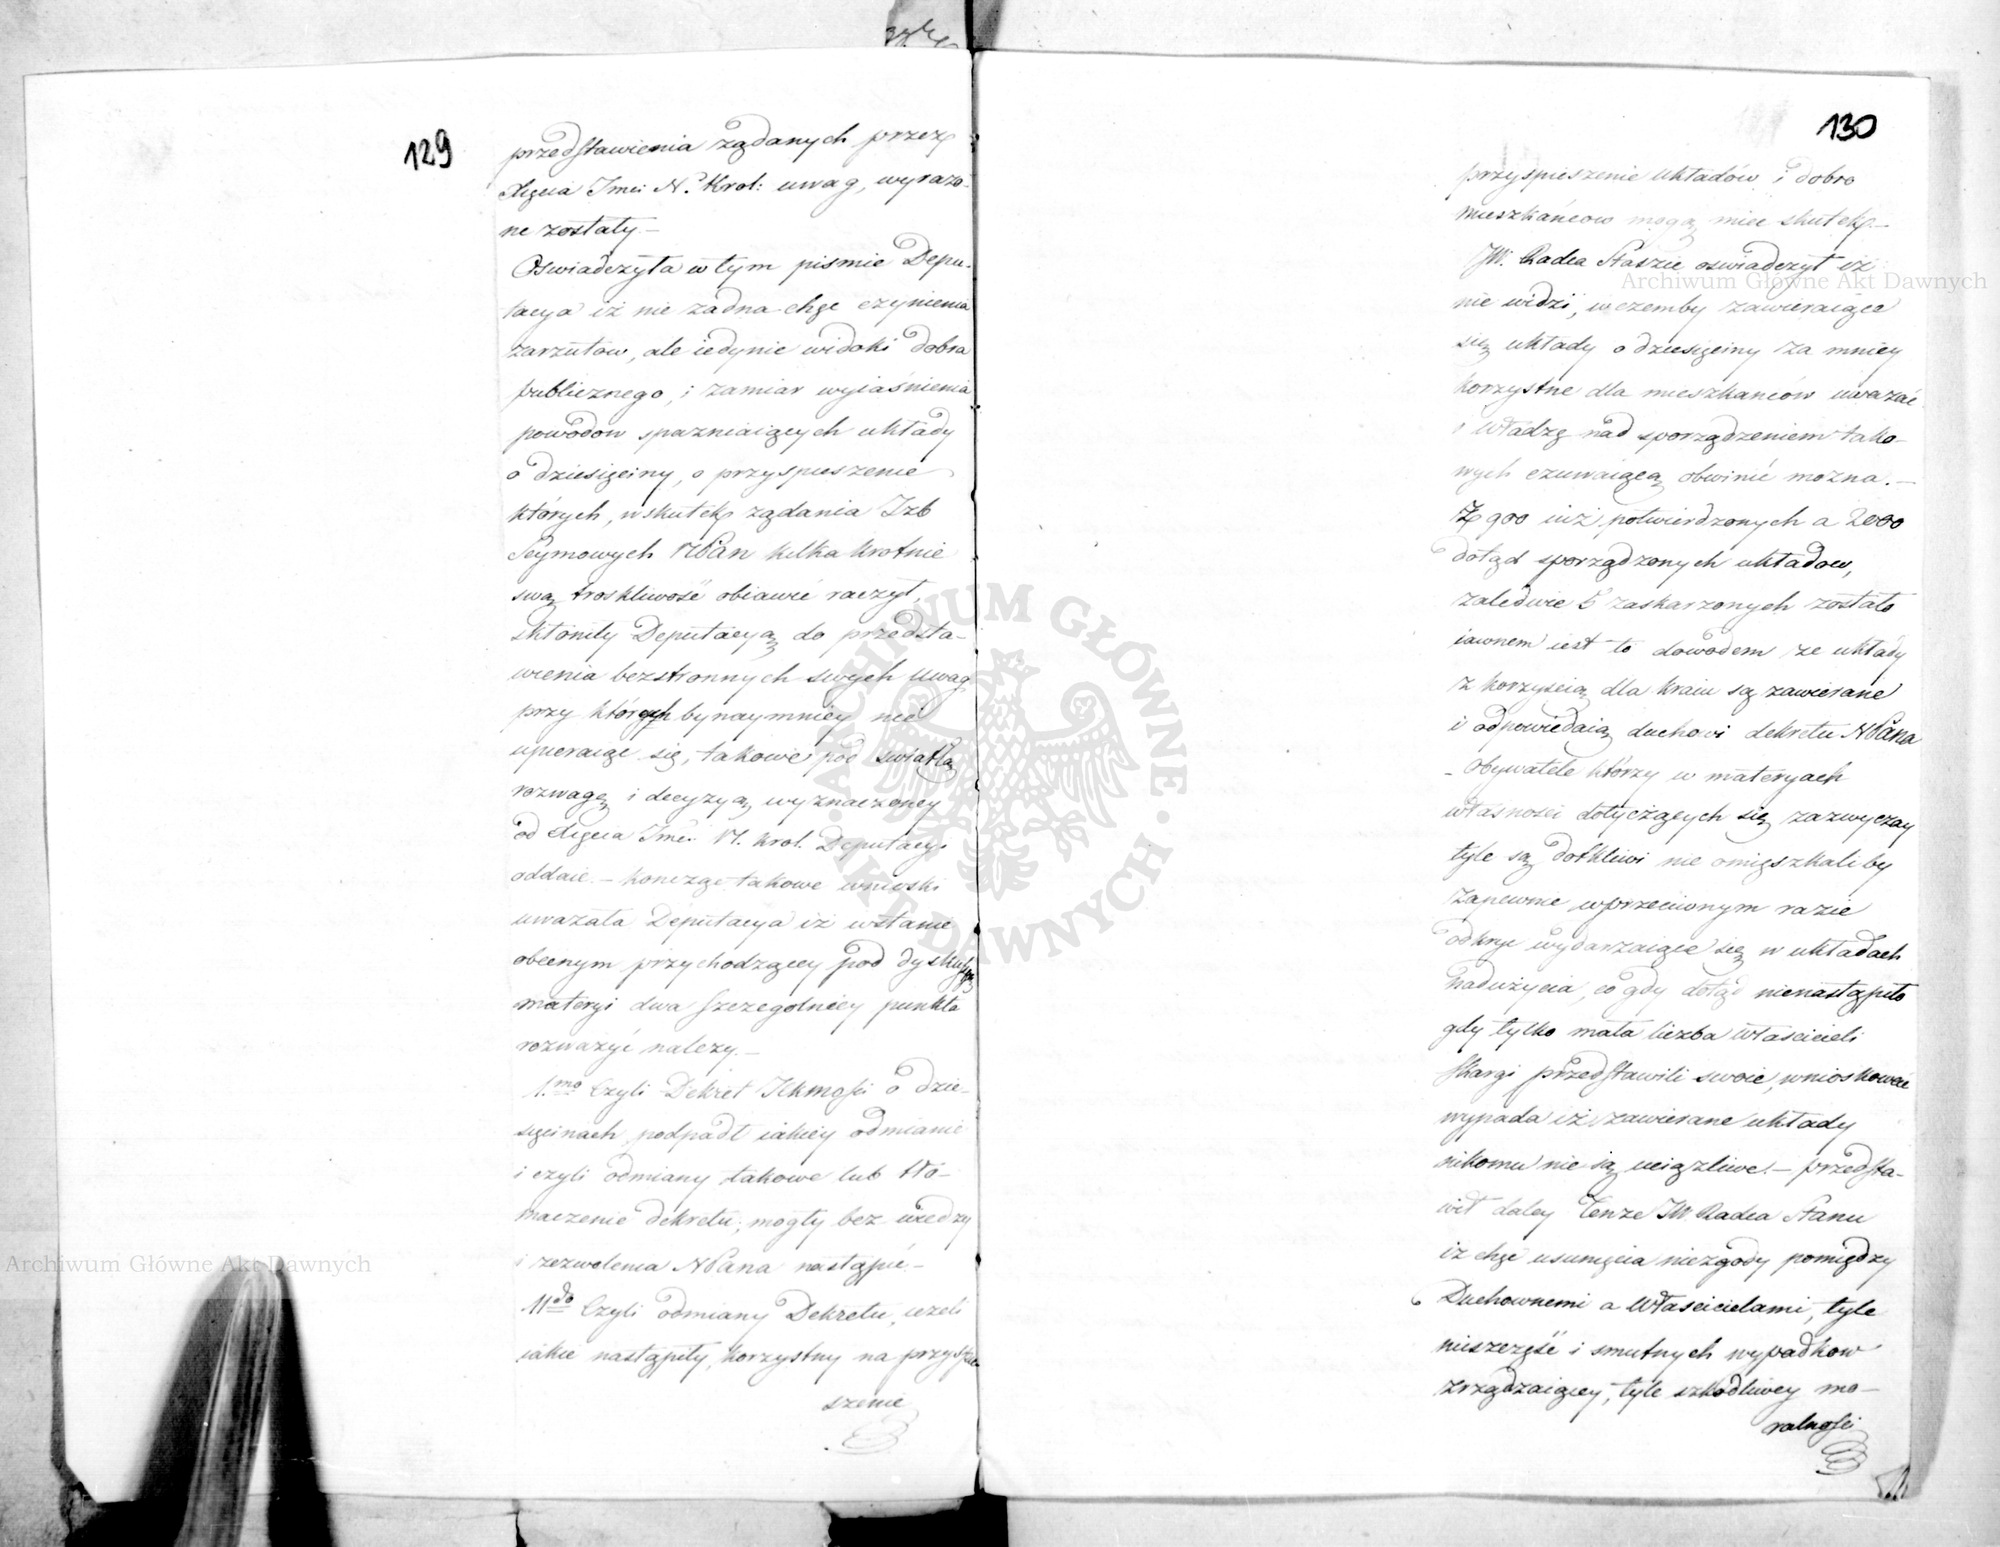 129
przedstawienia żądanych przez
Xięcia Jmci N. Krol: uwag, wyrazo-
ne zostały. —
Oswiadczyła w tym pismie Depu-
tacya iż nie żadna chęć czynienia
zarzutow, ale iedynie widoki dobra
publicznego, i zamiar wyiaśnienia
powodow spazniaiących układy
o dziesięciny, o przyspieszenie
których, wskutek żądania Izb
Seymowych NPan kilkakrotnie
swą troskliwość obiawić raczył,
skłoniły Deputacyą do przedsta-
wienia bezstronnych swych uwag
przy których bynaymniey nie
upieraiąc się, takowe pod swiatłą
rozwagę i decyzyą wyznaczoney
od Xięcia Jmci N. Krol. Deputacyi
oddaie. — Kończąc takowe wnioski
uważała Deputacya iż w stanie
obecnym przychodzącey pod dyskussyą
materyi dwa szczegolniey punkta
rozważyć należy. —
1.mo Czyli Dekret JKMości o dzie-
sięcinach podpadł iakiey odmianie
i czyli odmiany takowe lub tłó-
maczenie dekretu, mogły bez wiedzy
i zezwolenia NPana nastąpić —
IIdo Czyli odmiany Dekretu, ieżeli
iakie nastąpiły, korzystny na przyspie-
szenie
130
przyspieszenie układów i dobro
mieszkańcow mogą mieć skutek. —
JW. Radca Staszic oswiadczył iż
nie widzi, w czemby zawieraiące
się układy o dziesięciny za mniey
korzystne dla mieszkancow uważać
i władzę nad sporządzeniem tako-
wych czuwaiącą obwinić można. —
Z 900 iuż potwierdzonych a 2000
dotąd sporządzonych układow,
zaledwie 5 zaskarzonych zostało
iawnem iest to dowodem że układy
z korzyscią dla kraiu są zawierane
i odpowiedaią duchowi dekretu NPana
– Obywatele którzy w materyach
własnosci dotyczących się zazwyczay
tyle są dotkliwi nie omięszkaliby
zapewnie w przeciwnym razie
odkryć wydarzaiące się w układach
nadużycia, co gdy dotąd nienastąpiło
gdy tylko mała liczba właścicieli
skargi przedstawili swoie, wnioskować
wypada iż zawierane układy
nikomu nie są uciążliwe. — przedsta-
wił daley Tenże JW Radca Stanu
iż chęć usunięcia niezgody pomiędzy
Duchownemi a Właścicielami, tyle
nieszczęść i smutnych wypadkow
zrządzaiącey, tyle szkodliwey mo-
ralności
Archiwum Główne Akt Dawnych
Archiwum Główne Akt Dawnych
ARCHIWUM GŁÓWNE · AKT DAWNYCH ·